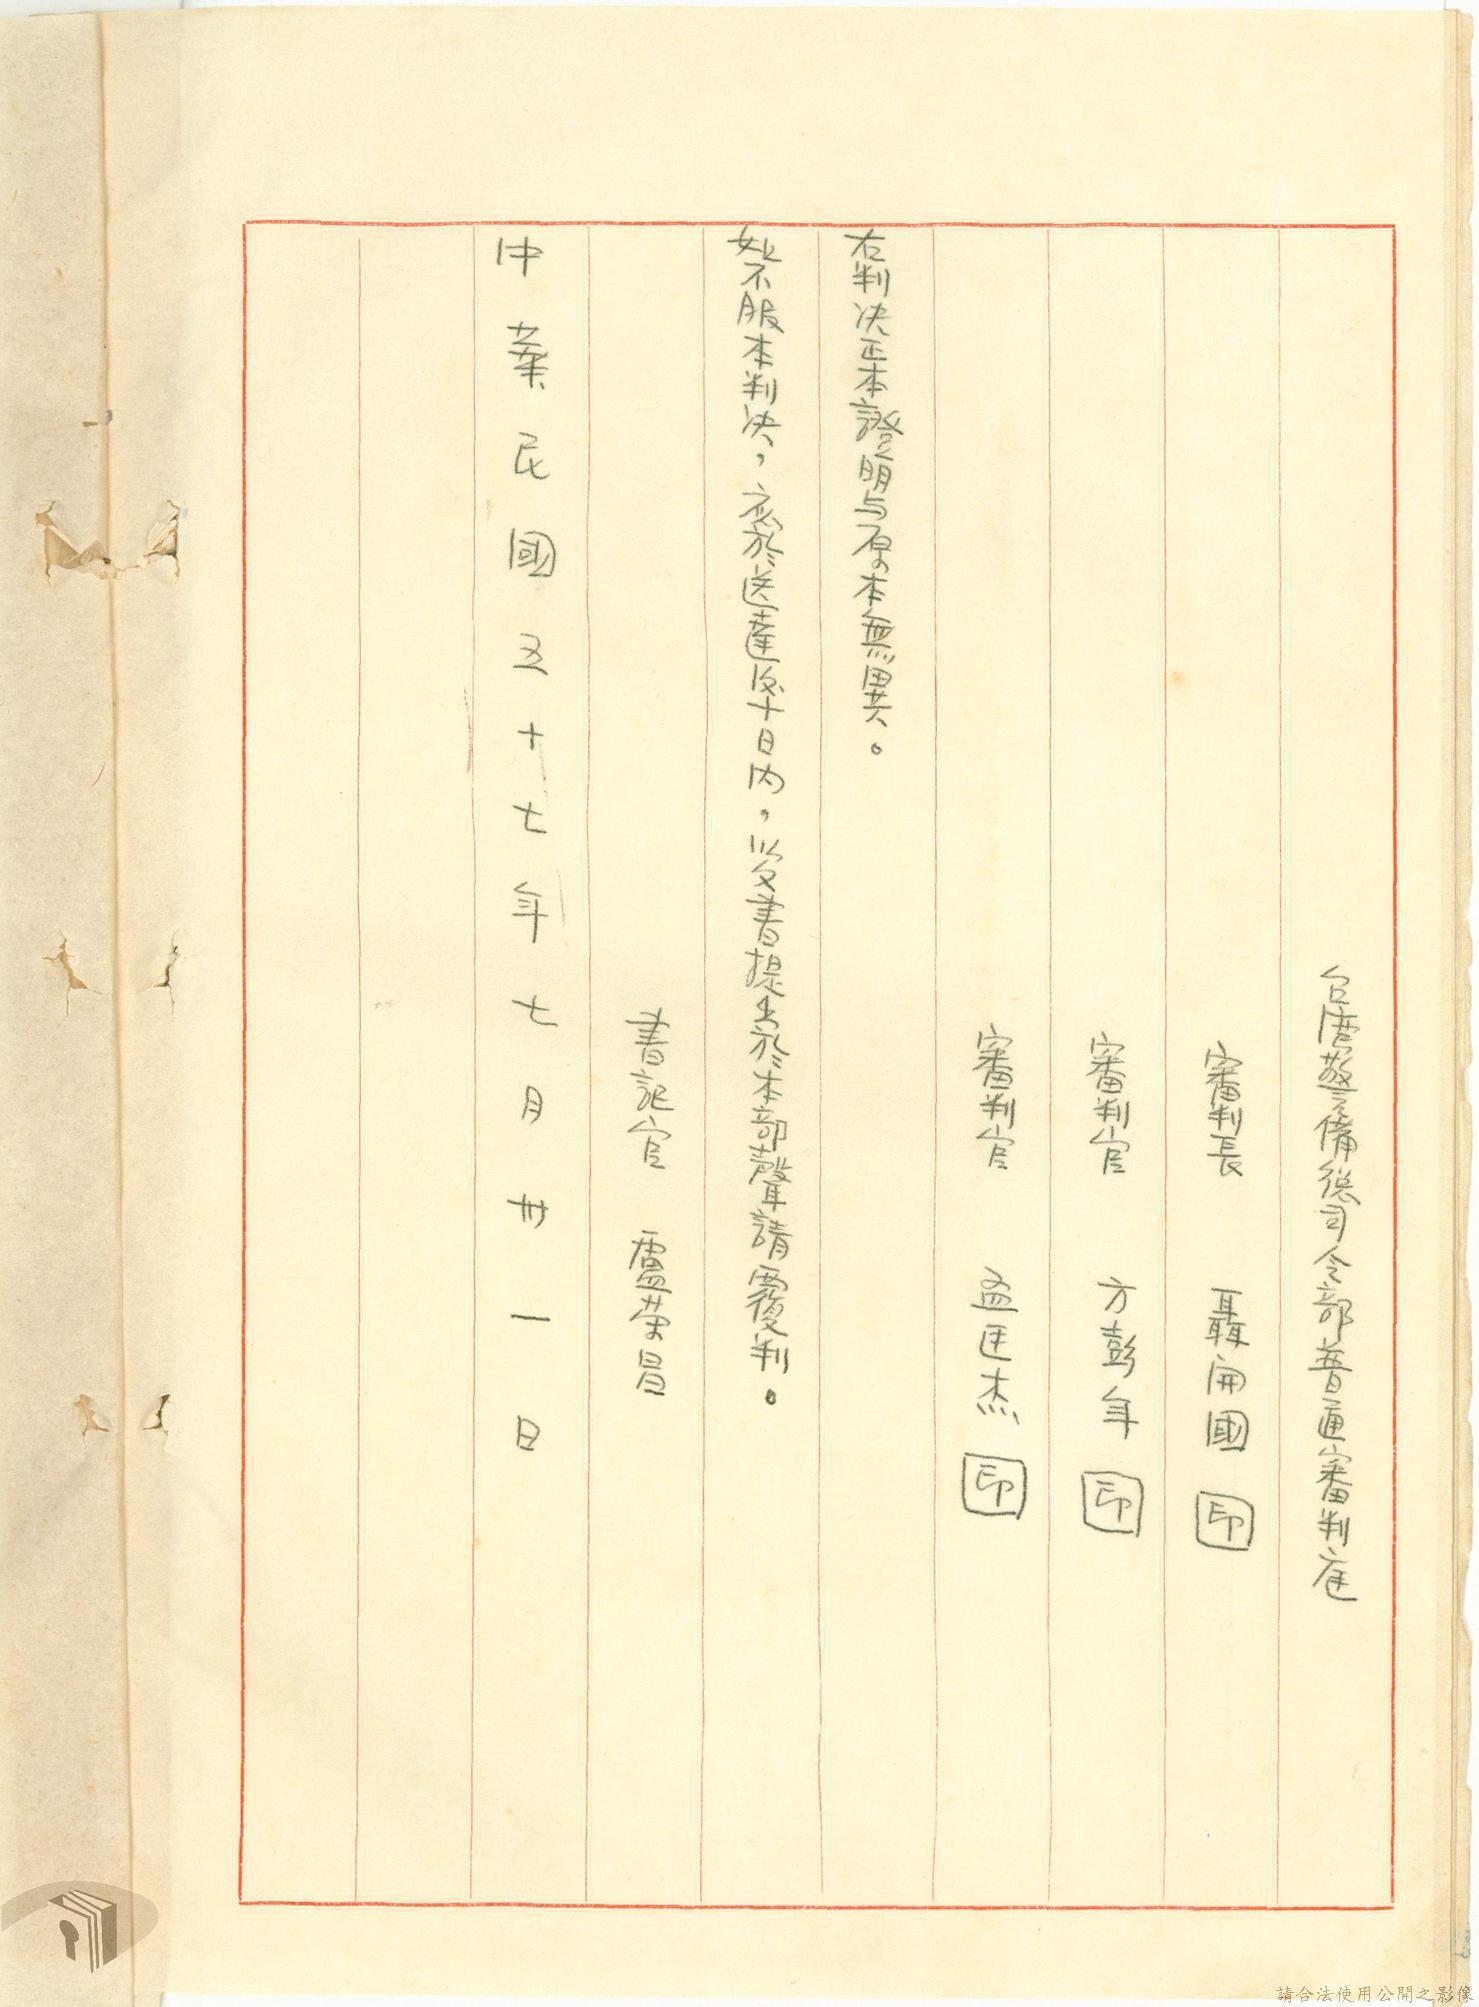 台灣警備總司令部普通審判庭
審判長 聶開國 印
審判官 方彭年 印
審判官 孟匡杰 印
右判決正本證明与原本無異。
如不服本判決,應於送達後十日內,以文書提出於本部聲請覆判。
書記官 盧荣昌
中華民國五十七年七月卅一日
請合法使用公開之影像